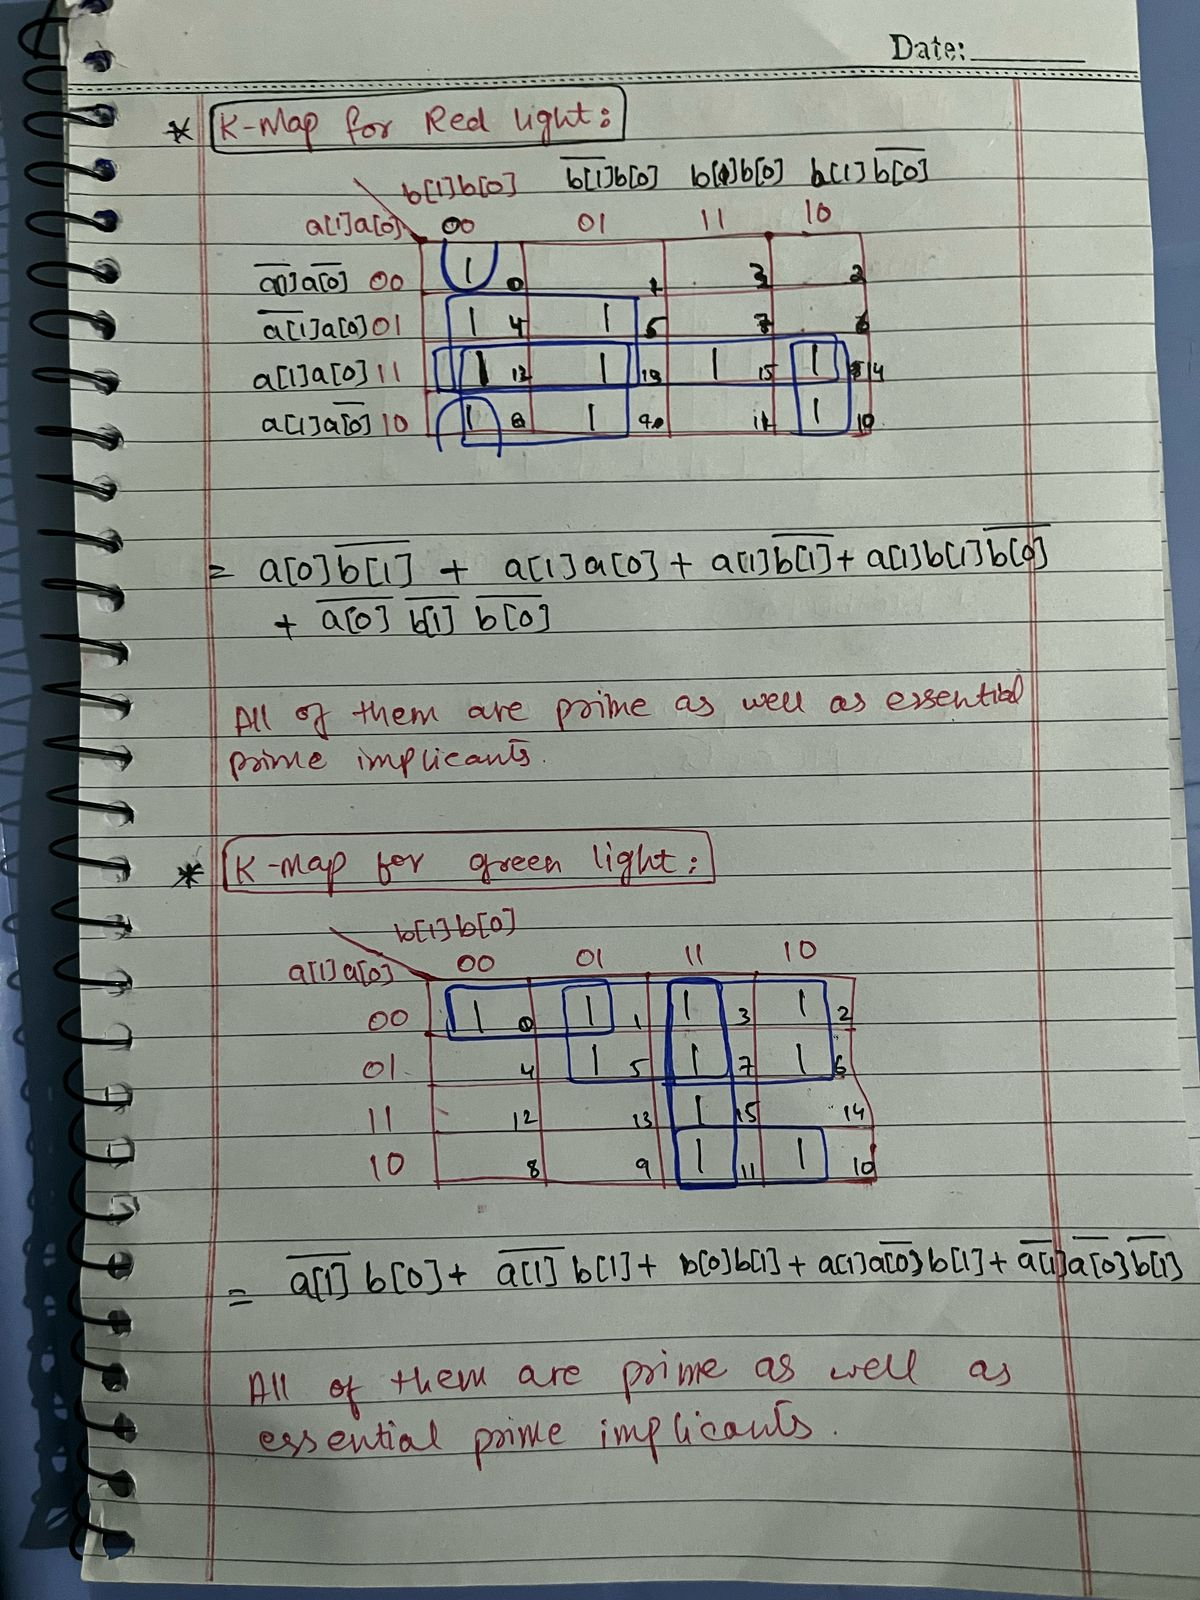 Date:
* K-Map for Red light:
b[1]b[0] b̅[̅1̅]̅b[0] b[1]b[0] b[1]b̅[̅0̅]̅
a[1]a[0] 00 01 11 10
a̅[̅1̅]̅a̅[̅0̅]̅ 00 1 0 1 3 2
a̅[̅1̅]̅a[0] 01 1 4 1 5 7 6
a[1]a[0] 11 1 12 1 13 1 15 1 14
a[1]a̅[̅0̅]̅ 10 1 8 1 9 11 1 10
= a[0]b̅[̅1̅]̅ + a[1]a[0] + a[1]b̅[̅1̅]̅ + a[1]b[1]b̅[̅0̅]̅
+ a̅[̅0̅]̅ b̅[̅1̅]̅ b̅[̅0̅]̅
All of them are prime as well as essential
prime implicants.
* K-map for green light:
b[1]b[0]
a[1]a[0] 00 01 11 10
00 1 0 1 1 1 3 1 2
01 4 1 5 1 7 1 6
11 12 13 1 15 14
10 8 9 1 11 1 10
= a̅[̅1̅]̅ b[0] + a̅[̅1̅]̅ b[1] + b[0]b[1] + a[1]a̅[̅0̅]̅b[1] + a̅[̅1̅]̅a̅[̅0̅]̅b̅[̅1̅]̅
All of them are prime as well as
essential prime implicants.